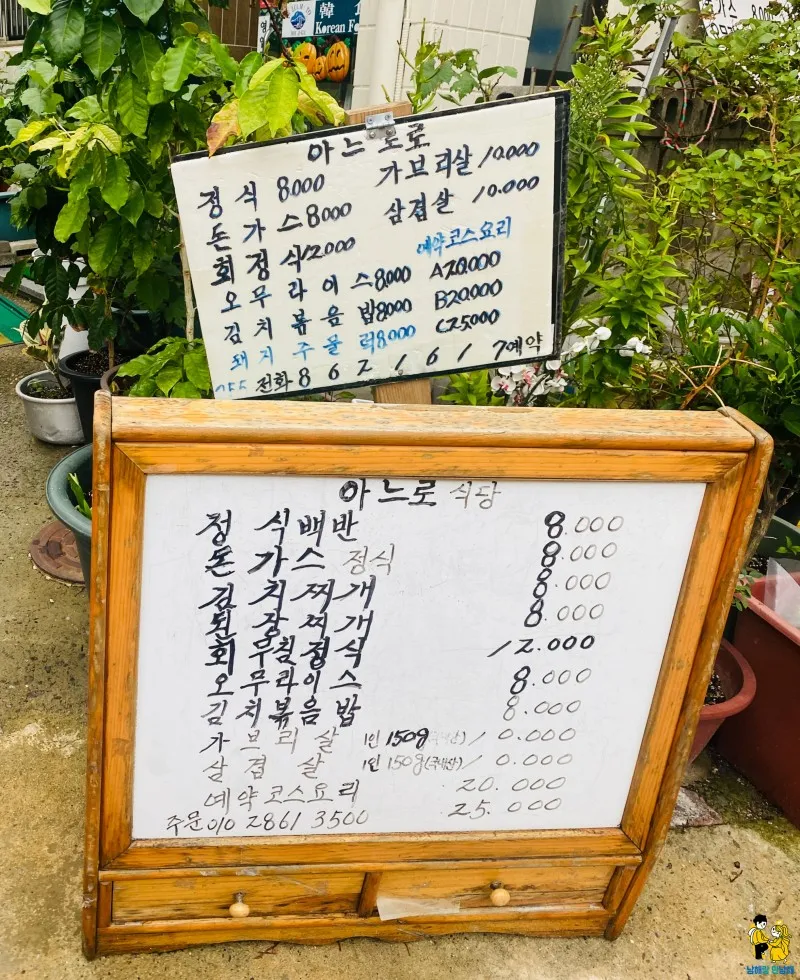 韓
Korean Fo
아느로로
정식 8000 가브리살 10.000
돈가스 8000 삼겹살 10.000
회정식 12000 예약코스요리
오무라이스 8,000 A 20,000
김치볶음밥 8000 B 20,000
돼지주물럭 8,000 C 25,000
055 전화 8 6 2 1 6 1 7 예약
아느로 식당
정식백반 8.000
돈가스 정식 8.000
김치찌개 8.000
된장찌개 8.000
회무침정식 12.000
오무라이스 8.000
김치볶음밥 8.000
가브리살 1인 150g(국내산) 10.000
삼겹살 1인 150g(국내산) 10.000
예약코스요리 20.000
25.000
주문 010 2861 3500